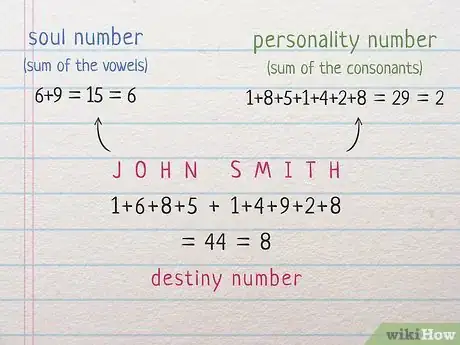 soul number
(sum of the vowels)
6+9 = 15 = 6
personality number
(sum of the consonants)
1+8+5+1+4+2+8 = 29 = 2
JOHN SMITH
1+6+8+5 + 1+4+9+2+8
= 44 = 8
destiny number
wikiHow